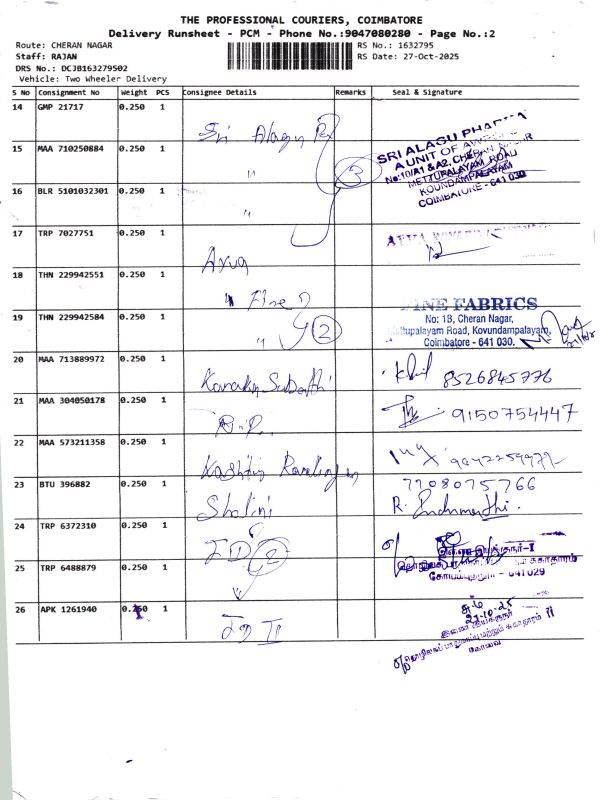 THE PROFESSIONAL COURIERS, COIMBATORE
Delivery Runsheet - PCM - Phone No.:9047080280 - Page No.:2
Route: CHERAN NAGAR RS No.: 1632795
Staff: RAJAN RS Date: 27-Oct-2025
DRS No.: DCJB163279502
Vehicle: Two Wheeler Delivery
S No Consignment No Weight PCS Consignee Details Remarks Seal & Signature
14 GMP 21717 0.250 1 Sri Alagu
15 MAA 710250884 0.250 1 " 3 SRI ALAGU PHARMA
A UNIT OF
No:10/A1 & A2, CHERAN NAGAR
METTUPALAYAM ROAD
KOUNDAMPALAYAM
COIMBATORE - 641 030
16 BLR 5101032301 0.250 1 "
17 TRP 7027751 0.250 1
18 THN 229942551 0.250 1 " Fine
19 THN 229942584 0.250 1 " 2 FINE FABRICS
No: 1B, Cheran Nagar,
Mettupalayam Road, Kovundampalayam,
Coimbatore - 641 030.
20 MAA 713889972 0.250 1 8526845776
21 MAA 304050178 0.250 1 9150754447
22 MAA 573211358 0.250 1
23 BTU 396882 0.250 1 Shalini 7708075766
R. Indumathi
24 TRP 6372310 0.250 1 JD 2
25 TRP 6488879 0.250 1 641029
26 APK 1261940 1 JD II